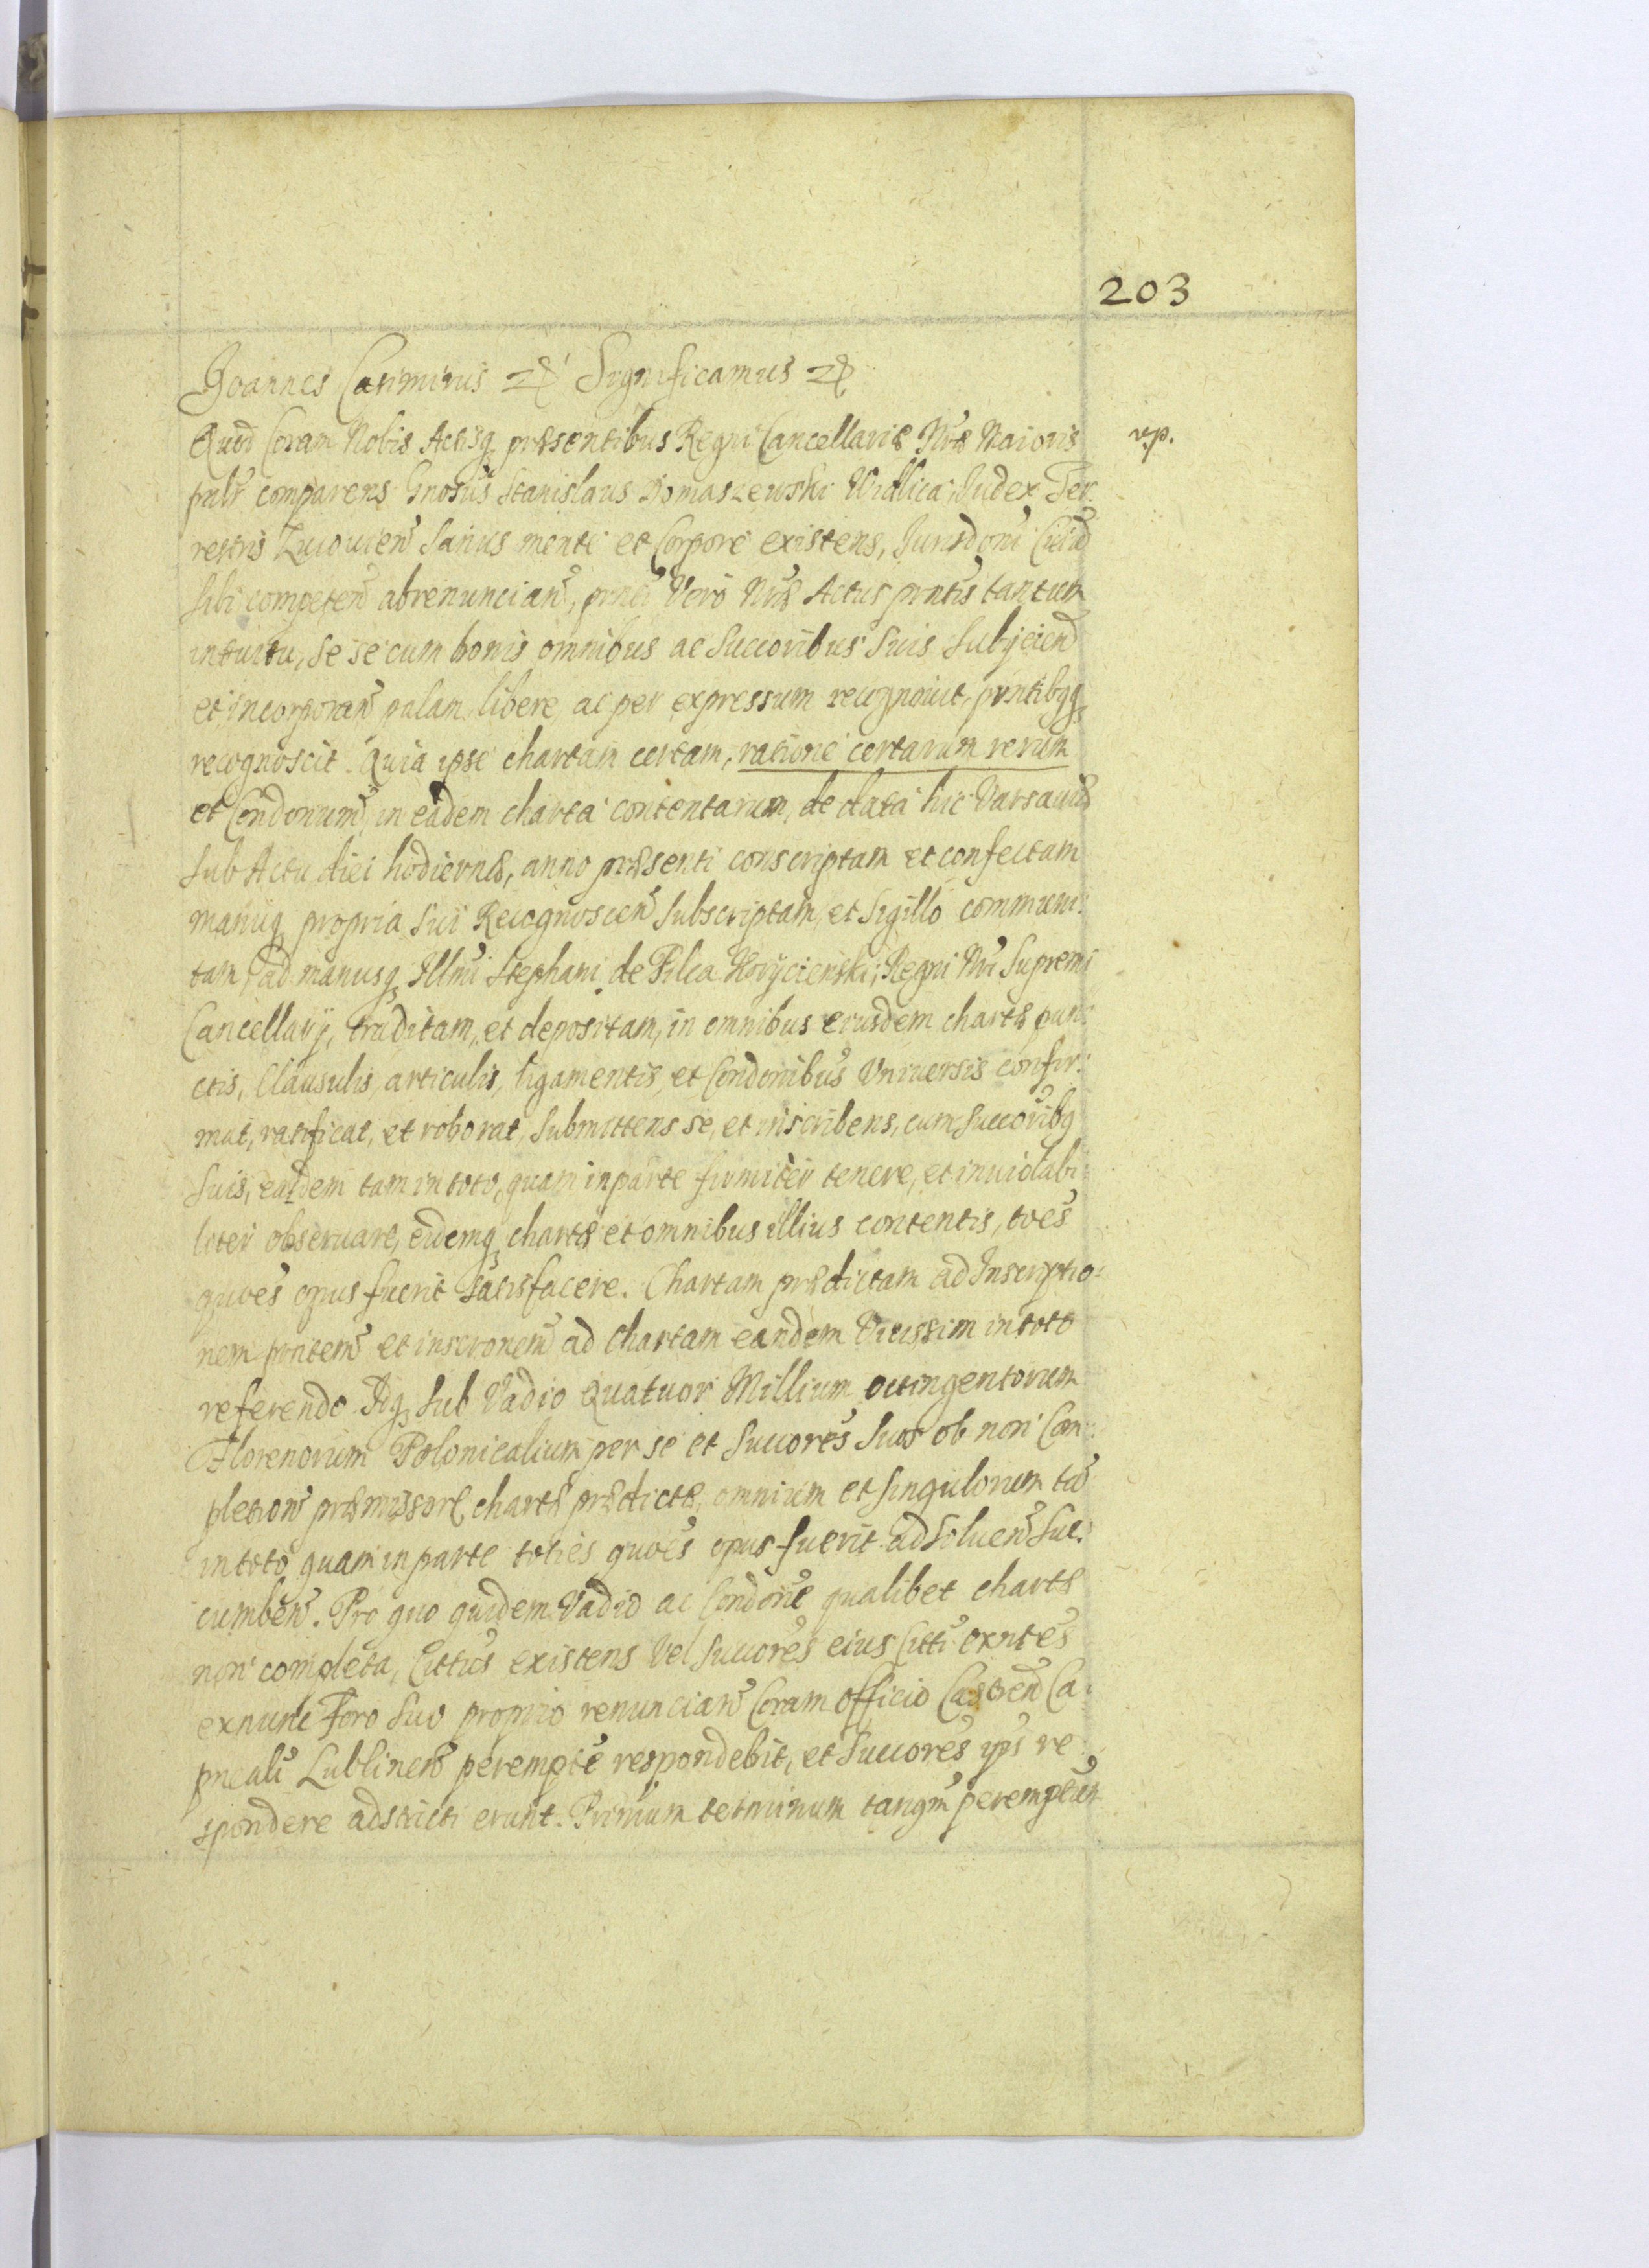 203
Joannes Casimirus Significamus
Quod Coram Nobis Actisq præsentibus Regni Cancellariæ Nræ Maioris
rp.
comparens Gnosus Stanislaus Domaszewski Judex Ter:
restris Lucouien Sanus mente et Corpore existens, Jurisdoni
sibi competen abrenuncian, Vero Nræ Actus pntis tantum
intuitu, se se cum bonis omnibus ac Succoribus Suis Subijcien
et incorporan palam libere ac per expressum recognouit, pntibqq
recognoscit. Quia ipse chartam certam, ratione certarum rerum
et Condonum, in eadem charta contentarum, de data hic Varsauiæ
Sub Actu diei hodiernæ, anno præsenti conscriptam et confectam
manuq propria Sui Recognoscen Subscriptam, et Sigillo communi:
tam, ad manusq Illmi Stephani de Pilca Korycienski, Regni Nri Supremi
Cancellarij, traditam, et depositam, in omnibus eiusdem chartæ pun:
ctis, Clausulis, articulis, ligamentis, et Condonibus Vniuersis confir:
mat, ratificat, et roborat, Submittens se, et inscribens, cum Succoribq
Suis, eandem tam in toto, quam in parte firmiter tenere, et inuiolabi:
liter obseruare, eidemq chartæ et omnibus illius contentis, toes
quoes opus fuerit satisfacere. Chartam prædictam ad Inscriptio:
nem pntem et inscronem ad Chartam eandem Vicissim in toto
referendo Idq Sub Vadio Quatuor Millium octingentorum
Florenorum Polonicalium per se et Succores Suos ob non Com:
pletion præmissor chartæ prædictæ, omnium et singulorum ta
in toto quam in parte toties quoes opus fuerit adsoluen Suc:
cumben. Pro quo quidem Vadio ac Condone qualibet chartæ
non completa, Cittus existens Vel Succores eius Citti exntes
exnunc Foro Suo proprio renuncian Coram Officio Castren Ca:
pneali Lublinen perempte respondebit, et Succores ipsi re
spondere adstricti erunt. Primum terminum tanqm peremptum